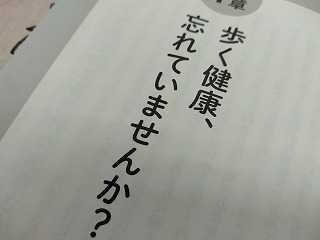 章
歩く健康、
忘れていませんか?